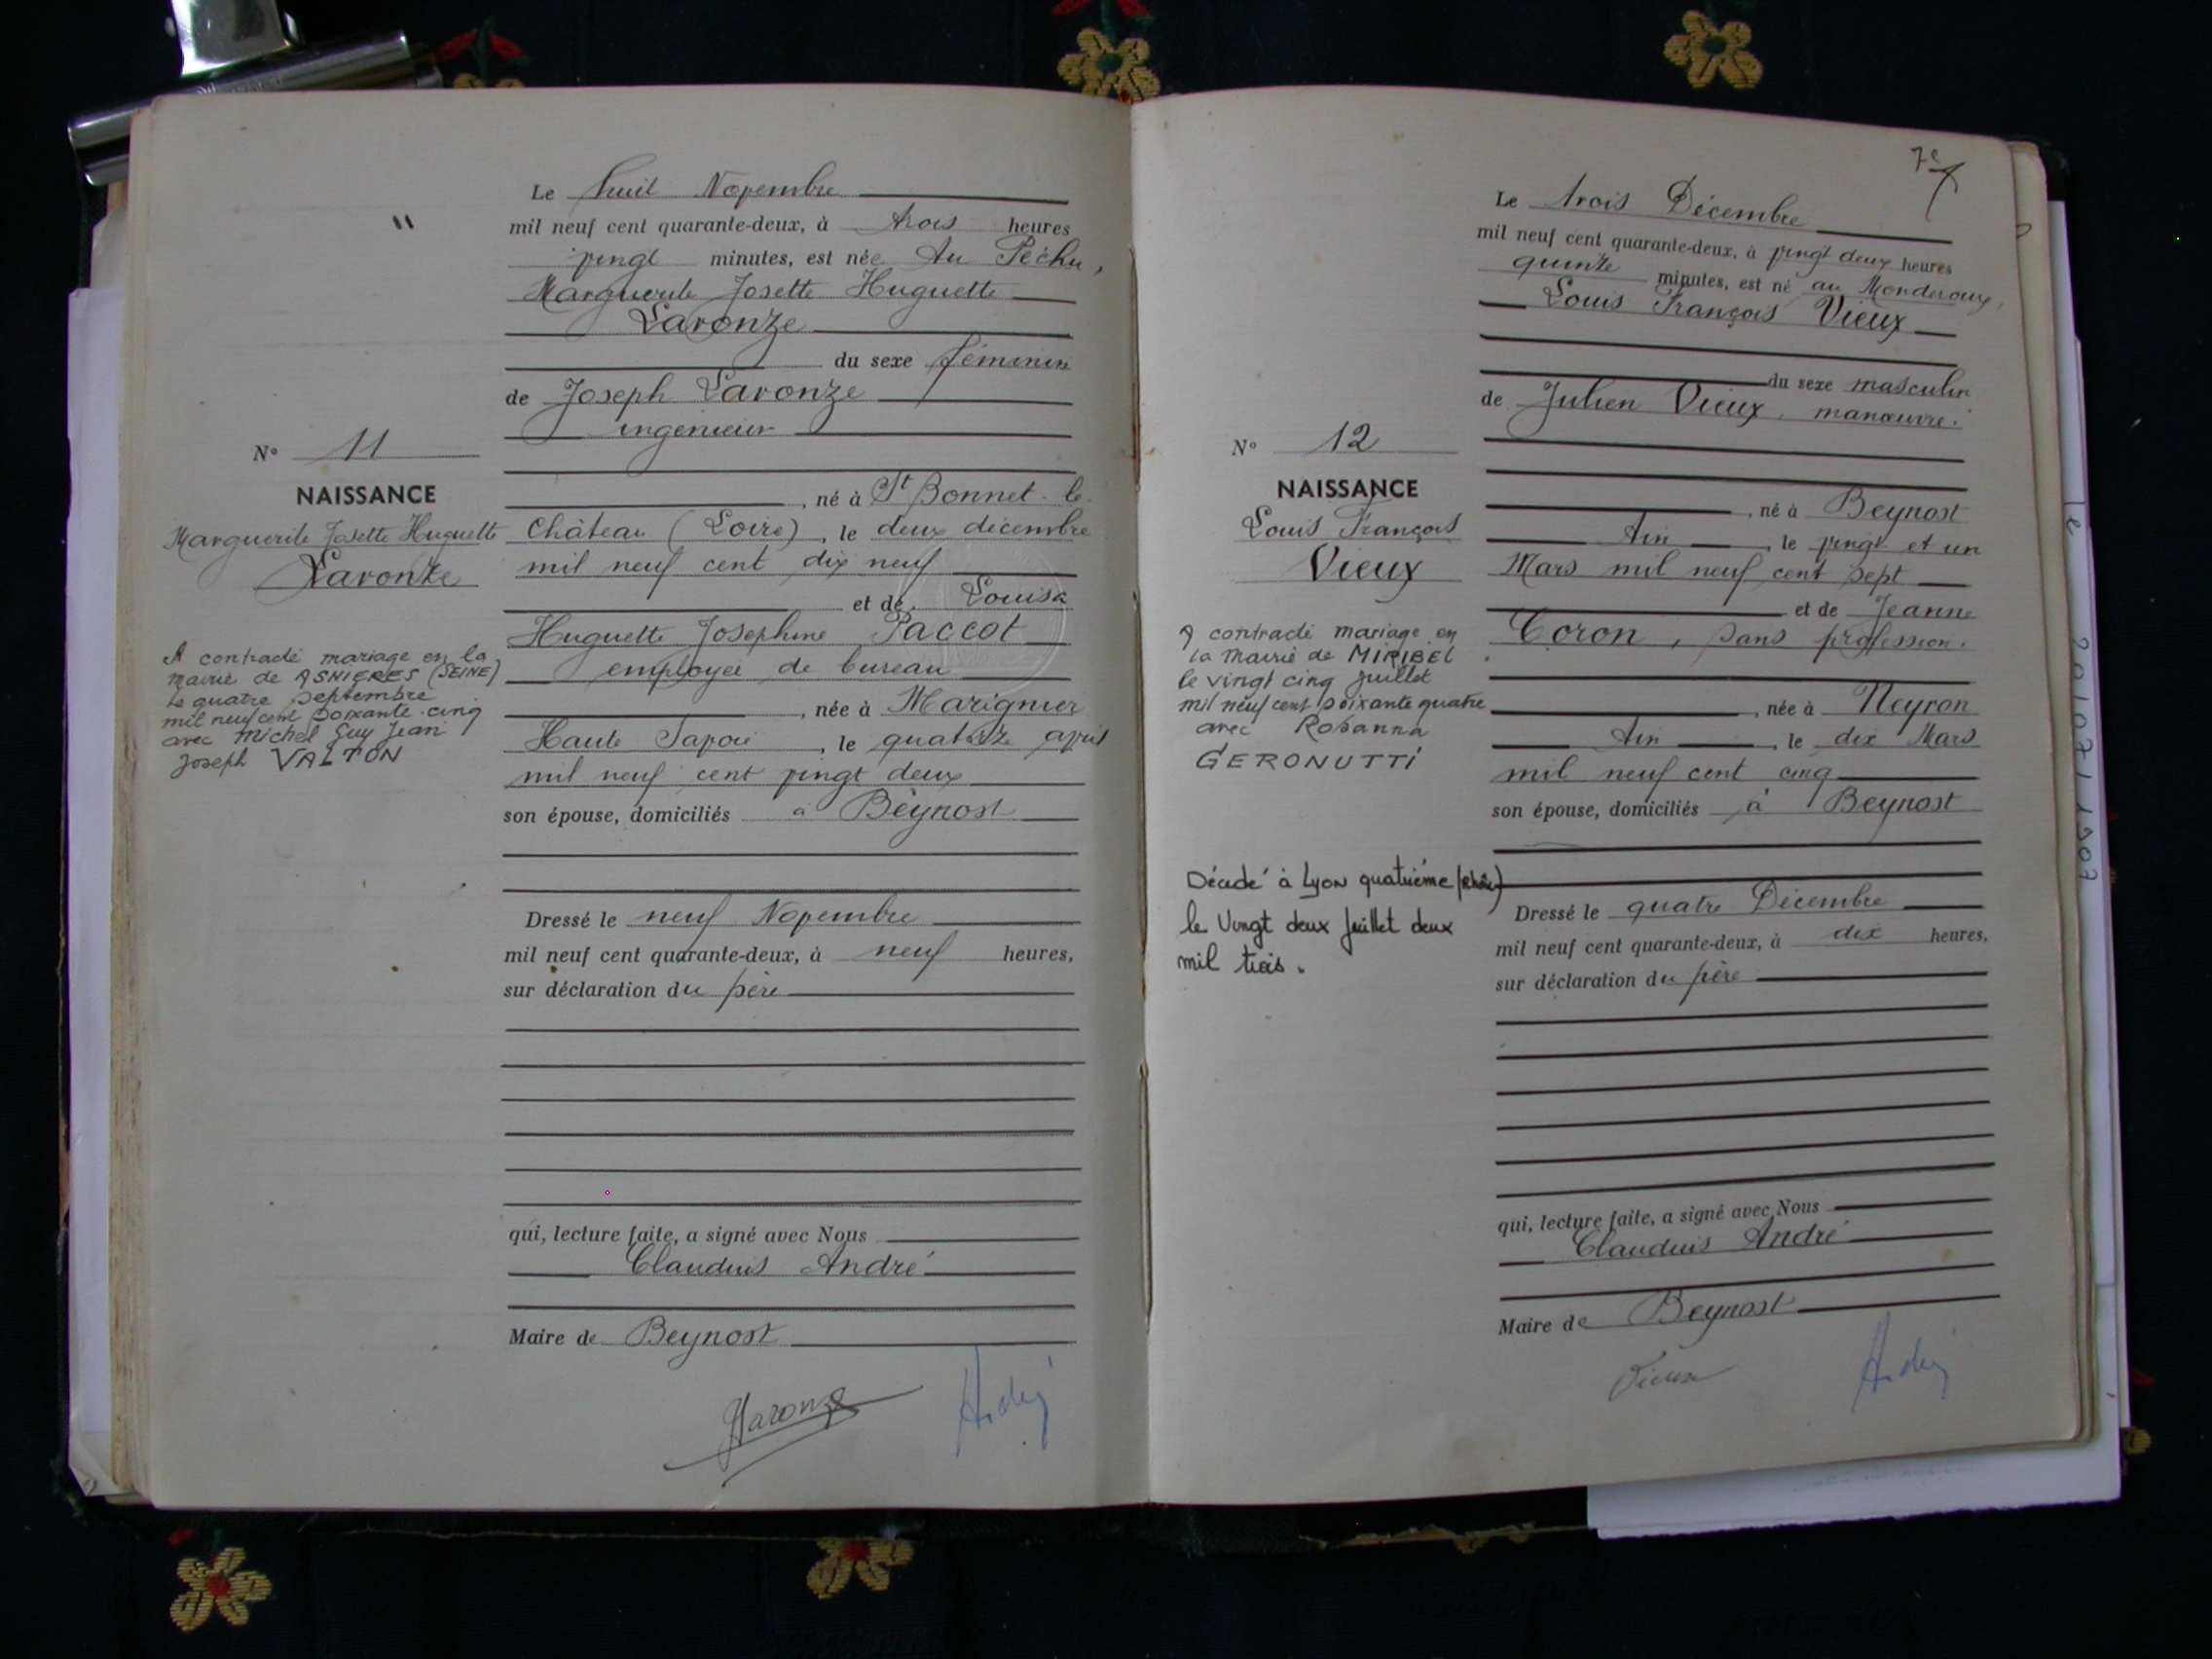 "
Le huit Novembre
mil neuf cent quarante-deux, à trois heures
vingt minutes, est née Au Péchu,
Marguerite Josette Huguette
Laronze
du sexe féminin
de Joseph Laronze
ingénieur
N° 11
NAISSANCE
Marguerite Josette Huguette
Laronze
A contracté mariage en la
mairie de ASNIERES (SEINE)
le quatre septembre
mil neuf cent soixante-cinq
avec Michel Guy Jean
Joseph VALTON
, né à St Bonnet-le-
Château (Loire), le deux décembre
mil neuf cent dix neuf
et de Louisa
Huguette Joséphine Paccot
employée de bureau
, née à Marignier
Haute Savoie, le quatorze avril
mil neuf cent vingt deux
son épouse, domiciliés à Beynost
Dressé le neuf Novembre
mil neuf cent quarante-deux, à neuf heures,
sur déclaration du père
qui, lecture faite, a signé avec Nous
Claudius André
Maire de Beynost
Laronze André
7e
Le trois Décembre
mil neuf cent quarante-deux, à vingt deux heures
quinze minutes, est né au
Louis François Vieux
du sexe masculin
de Julien Vieux, manœuvre.
N° 12
NAISSANCE
Louis François
Vieux
A contracté mariage en
la Mairie de MIRIBEL
le vingt cinq juillet
mil neuf cent soixante quatre
avec Rosanna
GERONUTTI
Décédé à Lyon quatrième (Rhône)
le Vingt deux Juillet deux
mil trois.
, né à Beynost
Ain, le vingt et un
Mars mil neuf cent sept
et de Jeanne
Coron, sans profession.
, née à Neyron
Ain, le dix Mars
mil neuf cent cinq
son épouse, domiciliés à Beynost
Dressé le quatre Décembre
mil neuf cent quarante-deux, à dix heures,
sur déclaration du père
qui, lecture faite, a signé avec Nous
Claudius André
Maire de Beynost
Vieux André